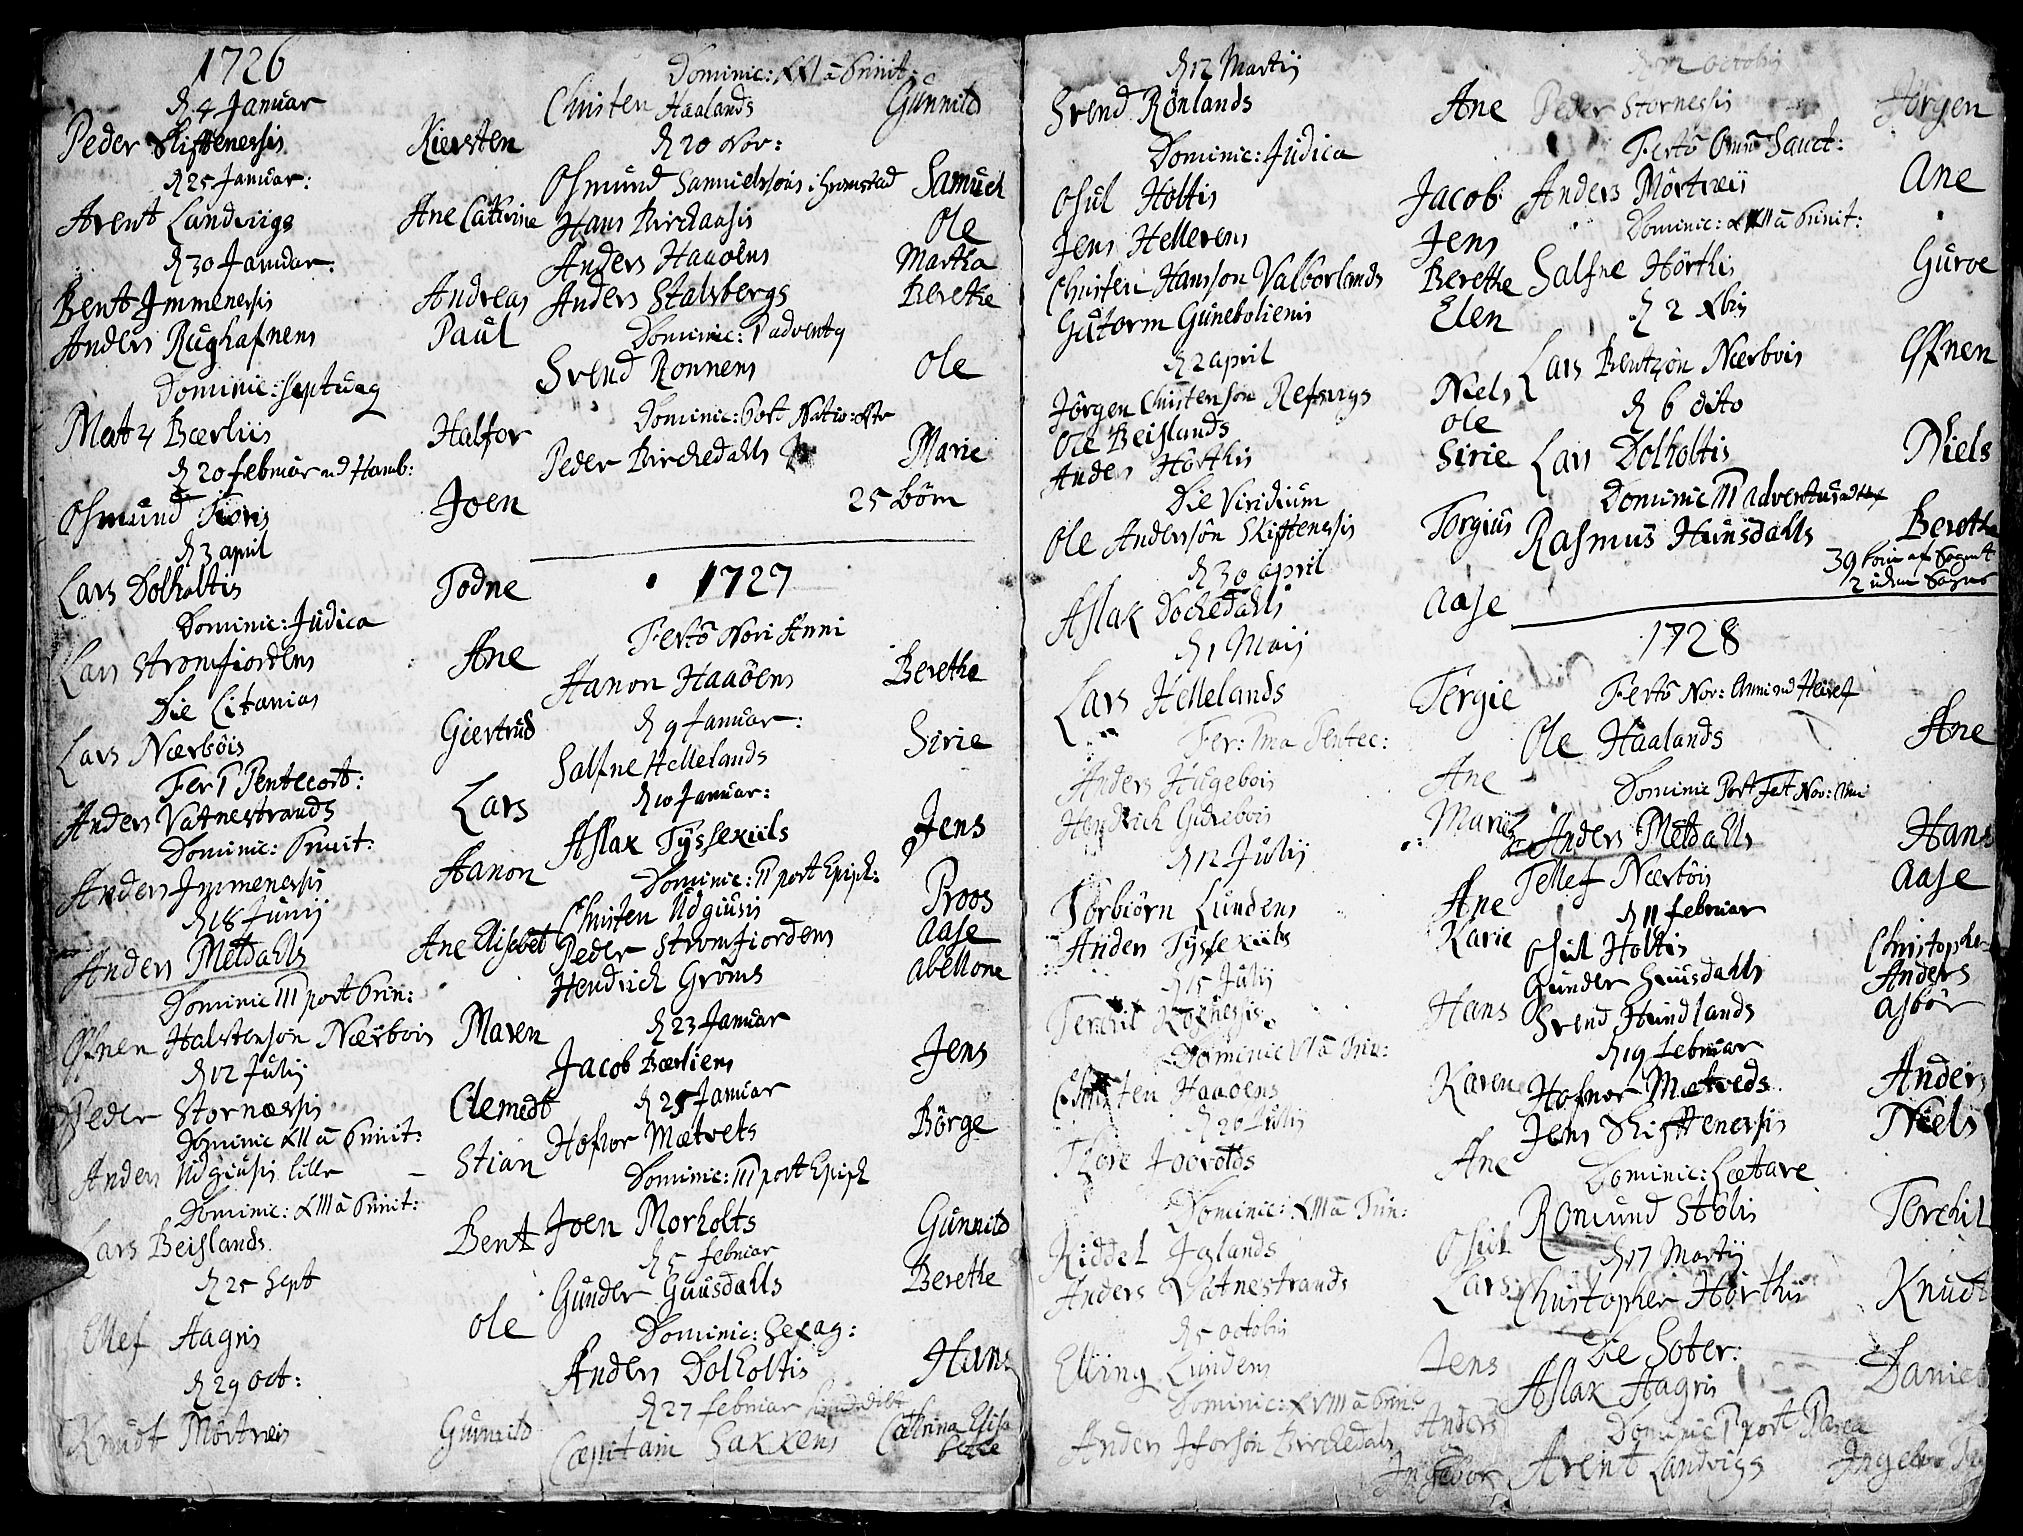 1726
d 4 Januar
Peder Skiftenessis Kiersten
d 25 Januar:
Arent Landvigs Ane Cathrine
d 30 Januar:
Bent Immenessis Andreas
Anders Rughafnens Paul
Dominic: Septuag
Matz Bærliis Halfor
d 20 Februar ad Homb:
Osmund Tiøris Joen
d 3 april
Lars Dolholtis Todne
Dominic: Judica
Lars Strømfiordens Ane
Die Litanias
Lars Nærbøis Giertrud
Fer I Pentecost:
Anders Vatnestrands Lars
Dominic: Trinit:
Anders Immenessis Aanon
d 18 Junij
Anders Metdahls Ane Elisebet
Dominic III post Trin:
Halvorsøn Nærbøis Maren
d 12 Julij
Peder Stornæssis Clemedt
Dominic XII a Trinit:
Anders Udgiusis lille Stian
Dominic: XIII a Trinit:
Lars Beislands Bent
d 25 Sept
Ellef Aagris Ole
d 29 Oct:
Knudt Mørtveis Gunnild
Dominic: XXI a Trinit:
Christen Haalands Gunnild
d 20 Nov:
Osmund Samuelsøns i Strømstad Samuel
Hans Birchaasis Ole
Anders Haaøens Martha
Anders Stalsbergs Berethe
Dominic: I advent9
Svend Rønnens Ole
Dominic: Post Nativ: Xsti
Peder Birchedahls Marie
25 Børn
1727
Festo Novi Anni
Aanon Haaøens Berethe
d 9 Januar:
Salfne Hellelands Sirie
d 10 Januar:
Aslak Tyssekiils Jens
Dominic: II post Epiph:
Christen Udgiusis Proos
Peder Strømfiordens Aase
Hendrich Grøms Abellone
d 23 Januar
Jacob Bærliens Jens
d 25 Januar
Hofvor Mætvets Børge
Dominic: III post Epiph
Joen Morholts Gunnild
d 5 Februar
Gunder Guusdahls Berethe
Dominic: Sexag:
Anders Dolholtis Hans
d 27 Februar
Capitain Sakkens Cathrina Elisabethe
d 12 Martij
Svend Rønlands Ane
Dominic: Judica
Osul Holtis Jacob
Jens Hellerens Jens
Christen Hansøn Valborlands Berethe
Gutorm Gunebolienis Elen
d 2 april
Jørgen Christensøn Refsvigs Niels
Ole Beislands Ole
Anders Hørthis Sirie
Die Viridium
Ole Andersøn Skiftenessis Torgius
d 30 april
Aslak Dochedahls Aase
d 1 Maij
Lars Hellelands Tergie
Fer: IIIa Pentec:
Anders Hugebois Ane
Hendrich Gurebois Marie
d 12 Julij
Torbiørn Lundens Ane
Anders Tyssekiils Karie
d 15 Julij
Terchil Hans
Dominic VI a Trin:
Christen Haaøens Karen
d 20 Julij
Thore Joreolds Ane
Dominic: XIII a Trin:
Kiddel Jalands Osul
Anders Vatnestrands Lars
d 5 octobis
Elling Lundens Jens
Dominic: XVIII a Trinit
Anders Ifversøn Birchedals Anders
Ingebor
d 12 octobis
Peder Stornessis Jørgen
Festo Omn Sanct:
Anders Mørtveis Ane
Dominic: XXII a Trinit:
Salfne Hørthis Guroe
d 2 Xbis
Lars Bentzøn Nærbøis Effnen
d 6 dito
Lars Dolholtis Niels
Dominic III adventus
Rasmus Hunsdahls Berethe
39 børn af Sognet
2 uden Sogns
1728
Festo Nov: Anni ad Heiref
Ole Haalands Ane
Dominic Post Fest Nov: Anni
Anders Metdahls Hans
Tellef Nærbøis Aase
d 11 Februar
Osul Holtis Christopher
Gunder Guusdahls Anders
Svend Hundlands Asbør
d 19 Februar
Hofvor Mætveds Anders
Jens Skifftenessis Niels
Dominic: Lætare
Romund Stølis Terchil
d 17 Martij
Christopher Hørthis Knudt
Die Soter:
Aslak Aagris Daniel
Dominic I post Pasca
Arent Landvigs